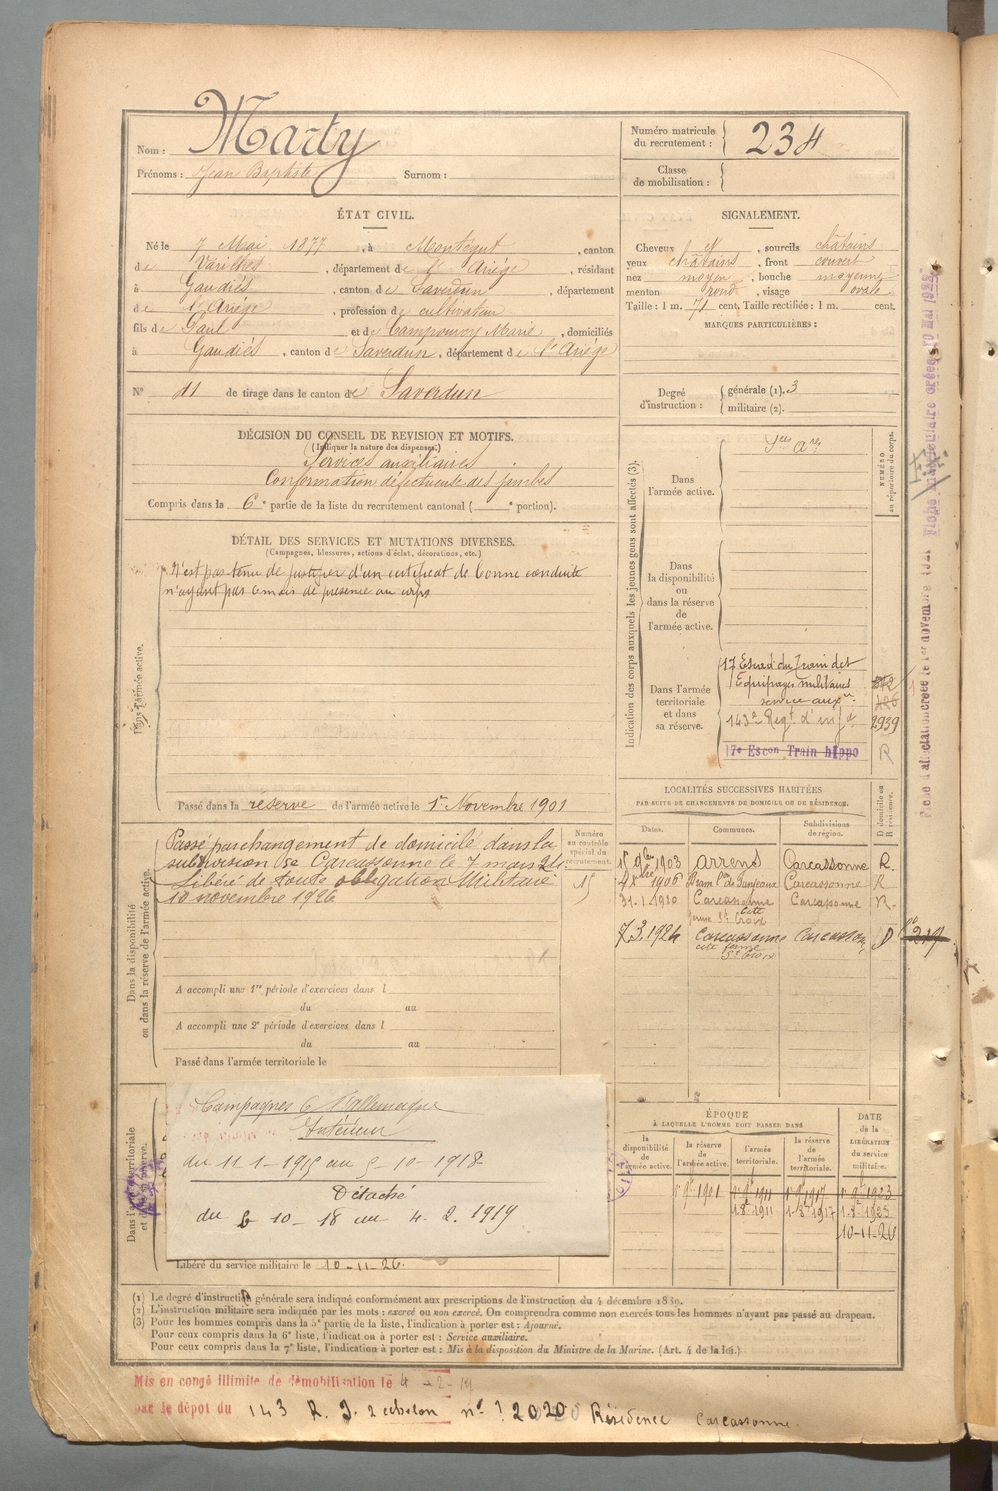 Nom : Marty
Prénoms : Jean Baptiste Surnom :
Numéro matricule du recrutement : 234
Classe de mobilisation :
ÉTAT CIVIL.
Né le 7 Mai 1877, à Montégut, canton
de Varilhes, département de l'Ariège, résidant
à Gaudiès, canton de Saverdun, département
de l'Ariège, profession de cultivateur
fils de Paul et de Campourcy Marie, domiciliés
à Gaudiès, canton de Saverdun, département de l'Ariège
N° 11 de tirage dans le canton de Saverdun
SIGNALEMENT.
Cheveux et, sourcils châtains
yeux châtains, front couvert
nez moyen, bouche moyenne
menton rond, visage ovale
Taille : 1 m. 71 cent. Taille rectifiée : 1 m. cent.
MARQUES PARTICULIÈRES :
Degré d'instruction : générale (1). 3
militaire (2).
DÉCISION DU CONSEIL DE REVISION ET MOTIFS.
(Indiquer la nature des dispenses.)
Services auxiliaires
Conformation défectueuse des jambes
Compris dans la 6e partie de la liste du recrutement cantonal ( e portion).
DÉTAIL DES SERVICES ET MUTATIONS DIVERSES.
(Campagnes, blessures, actions d'éclat, décorations, etc.)
Dans l'armée active.
N'est pas tenu de justifier d'un certificat de bonne conduite
n'ayant pas 6 mois de présence au corps
Passé dans la réserve de l'armée active le 1er Novembre 1901
Indication des corps auxquels les jeunes gens sont affectés (3).
NUMÉRO au répertoire du corps.
Dans l'armée active.
Dans la disponibilité ou dans la réserve de l'armée active.
Dans l'armée territoriale et dans sa réserve.
17 Escad du Train des
Equipages militaires
service auxre
143e Regt d'infie
2939
17e Escon Train hippo
R
Fiche d'affectation créée le 1er novembre 1921
Dans la disponibilité ou dans la réserve de l'armée active.
Passé par changement de domicile dans la
subdivision de Carcassonne le 7 mars 24
Libéré de toute obligation Militaire
10 novembre 1926
Numéro au contrôle spécial du recrutement.
15
A accompli une 1re période d'exercices dans l
du au
A accompli une 2e période d'exercices dans l
du au
Passé dans l'armée territoriale le
LOCALITÉS SUCCESSIVES HABITÉES
PAR SUITE DE CHANGEMENTS DE DOMICILE OU DE RÉSIDENCE.
Dates. Communes. Subdivisions de région. D domicile ou R résidence.
1903 Arrens Carcassonne R.
1906 Bram Carcassonne R
31-1-1910 Carcassonne Carcassonne R
Cité
ferme Ste Croix
7.3.1924 Carcassonne Carcassonne D
cité ferme
Ste Croix
217
Dans l'armée territoriale et dans sa réserve.
Campagnes C. l'allemagne
Intérieur
du 11-1-1915 au 5-10-1918
Détaché
du 6-10-18 au 4.2.1919
Libéré du service militaire le 10-11-26.
ÉPOQUE
À LAQUELLE L'HOMME DOIT PASSER DANS
la disponibilité de l'armée active. la réserve de l'armée active. l'armée territoriale. la réserve de l'armée territoriale.
DATE de la LIBÉRATION du service militaire.
1er 9bre 1901 1er 9bre 1911 1er 9bre 1917 1er 9bre 1923
1-8-1911 1-8-1917 1-8-1923
10-11-26
(1) Le degré d'instruction générale sera indiqué conformément aux prescriptions de l'instruction du 4 décembre 1889.
(2) L'instruction militaire sera indiquée par les mots : exercé ou non exercé. On comprendra comme non exercés tous les hommes n'ayant pas passé au drapeau.
(3) Pour les hommes compris dans la 5e partie de la liste, l'indication à porter est : Ajourné.
Pour ceux compris dans la 6e liste, l'indication à porter est : Service auxiliaire.
Pour ceux compris dans la 7e liste, l'indication à porter est : Mis à la disposition du Ministre de la Marine. (Art. 4 de la loi.)
Mis en congé illimité de démobilisation le 4-2-19
par le dépôt du 143 R. I. 2 echelon n° 2020 Résidence Carcassonne.